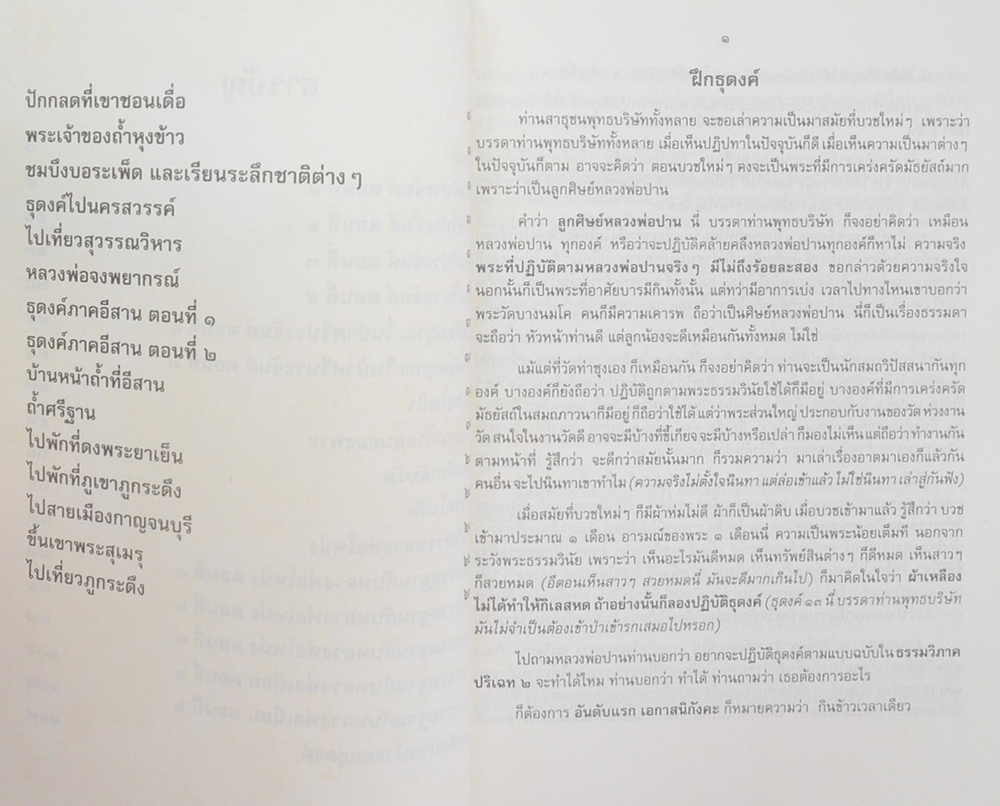 ปักกลดที่เขาชอนเดื่อ
พระเจ้าของถ้ำหุงข้าว
ชมบึงบอระเพ็ด และเรียนระลึกชาติต่างๆ
ธุดงค์ไปนครสวรรค์
ไปเที่ยวสุวรรณวิหาร
หลวงพ่อจงพยากรณ์
ธุดงค์ภาคอีสาน ตอนที่ ๑
ธุดงค์ภาคอีสาน ตอนที่ ๒
บ้านหน้าถ้ำที่อีสาน
ถ้ำศรีฐาน
ไปพักที่ดงพระยาเย็น
ไปพักที่ภูเขาภูกระดึง
ไปสายเมืองกาญจนบุรี
ขึ้นเขาพระสุเมรุ
ไปเที่ยวภูกระดึง
๑
ฝึกธุดงค์
ท่านสาธุชนพุทธบริษัททั้งหลาย จะขอเล่าความเป็นมาสมัยที่บวชใหม่ๆ เพราะว่า
บรรดาท่านพุทธบริษัททั้งหลาย เมื่อเห็นปฏิปทาในปัจจุบันก็ดี เมื่อเห็นความเป็นมาต่างๆ
ในปัจจุบันก็ตาม อาจจะคิดว่า ตอนบวชใหม่ๆ คงจะเป็นพระที่มีการเคร่งครัดมัธยัสถ์มาก
เพราะว่าเป็นลูกศิษย์หลวงพ่อปาน
คำว่า ลูกศิษย์หลวงพ่อปาน นี่ บรรดาท่านพุทธบริษัท ก็จงอย่าคิดว่า เหมือน
หลวงพ่อปาน ทุกองค์ หรือว่าจะปฏิบัติคล้ายคลึงหลวงพ่อปานทุกองค์ก็หาไม่ ความจริง
พระที่ปฏิบัติตามหลวงพ่อปานจริงๆ มีไม่ถึงร้อยละสอง ขอกล่าวด้วยความจริงใจ
นอกนั้นก็เป็นพระที่อาศัยบารมีกินทั้งนั้น แต่ทว่ามีอาการเบ่ง เวลาไปทางไหนเขาบอกว่า
พระวัดบางนมโค คนก็มีความเคารพ ถือว่าเป็นศิษย์หลวงพ่อปาน นี่ก็เป็นเรื่องธรรมดา
จะถือว่า หัวหน้าท่านดี แต่ลูกน้องจะดีเหมือนกันทั้งหมด ไม่ใช่
แม้แต่ที่วัดท่าซุงเอง ก็เหมือนกัน ก็จงอย่าคิดว่า ท่านจะเป็นนักสมถวิปัสสนากันทุก
องค์ บางองค์ก็ยังถือว่า ปฏิบัติถูกตามพระธรรมวินัยใช้ได้ก็มีอยู่ บางองค์ที่มีการเคร่งครัด
มัธยัสถ์ในสมถภาวนาก็มีอยู่ ก็ถือว่าใช้ได้ แต่ว่าพระส่วนใหญ่ ประกอบกับงานของวัด ห่วงงาน
วัด สนใจในงานวัดดี อาจจะมีบ้างที่ขี้เกียจ จะมีบ้างหรือเปล่า ก็มองไม่เห็น แต่ถือว่า ทำงานกัน
ตามหน้าที่ รู้สึกว่า จะดีกว่าสมัยนั้นมาก ก็รวมความว่า มาเล่าเรื่องอาตมาเองก็แล้วกัน
คนอื่น จะไปนินทาเขาทำไม (ความจริงไม่ตั้งใจนินทา แต่ล่อเข้าแล้ว ไม่ใช่นินทา เล่าสู่กันฟัง)
เมื่อสมัยที่บวชใหม่ๆ ก็มีผ้าห่มไม่ดี ผ้าก็เป็นผ้าดิบ เมื่อบวชเข้ามาแล้ว รู้สึกว่า บวช
เข้ามาประมาณ ๑ เดือน อารมณ์ของพระ ๑ เดือนนี่ ความเป็นพระน้อยเต็มที นอกจาก
ระวังพระธรรมวินัย เพราะว่า เห็นอะไรมันดีหมด เห็นทรัพย์สินต่างๆ ก็ดีหมด เห็นสาวๆ
ก็สวยหมด (อีตอนเห็นสาวๆ สวยหมดนี่ มันจะดีมากเกินไป) ก็มาคิดในใจว่า ผ้าเหลือง
ไม่ได้ทำให้กิเลสหด ถ้าอย่างนั้นก็ลองปฏิบัติธุดงค์ (ธุดงค์ ๑๓ นี่ บรรดาท่านพุทธบริษัท
มันไม่จำเป็นต้องเข้าป่าเข้ารกเสมอไปหรอก)
ไปถามหลวงพ่อปานท่านบอกว่า อยากจะปฏิบัติธุดงค์ตามแบบฉบับใน ธรรมวิภาค
ปริเฉท ๒ จะทำได้ไหม ท่านบอกว่า ทำได้ ท่านถามว่า เธอต้องการอะไร
ก็ต้องการ อันดับแรก เอกาสนิกังคะ ก็หมายความว่า กินข้าวเวลาเดียว